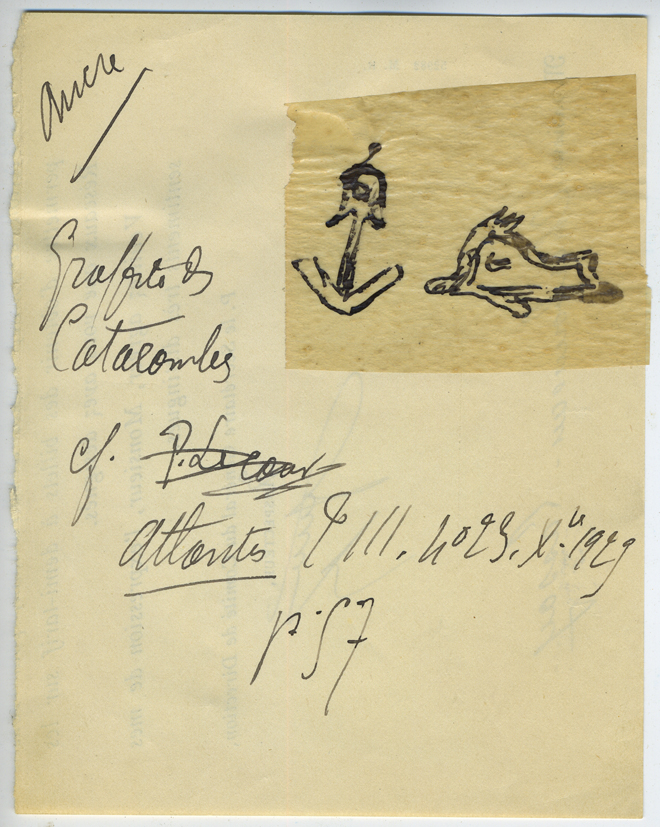 Ancre
Graffito des
Catacombes
cf. P. Le Cour
Atlantis T III. n° 23. X.bre 1929
p. 57